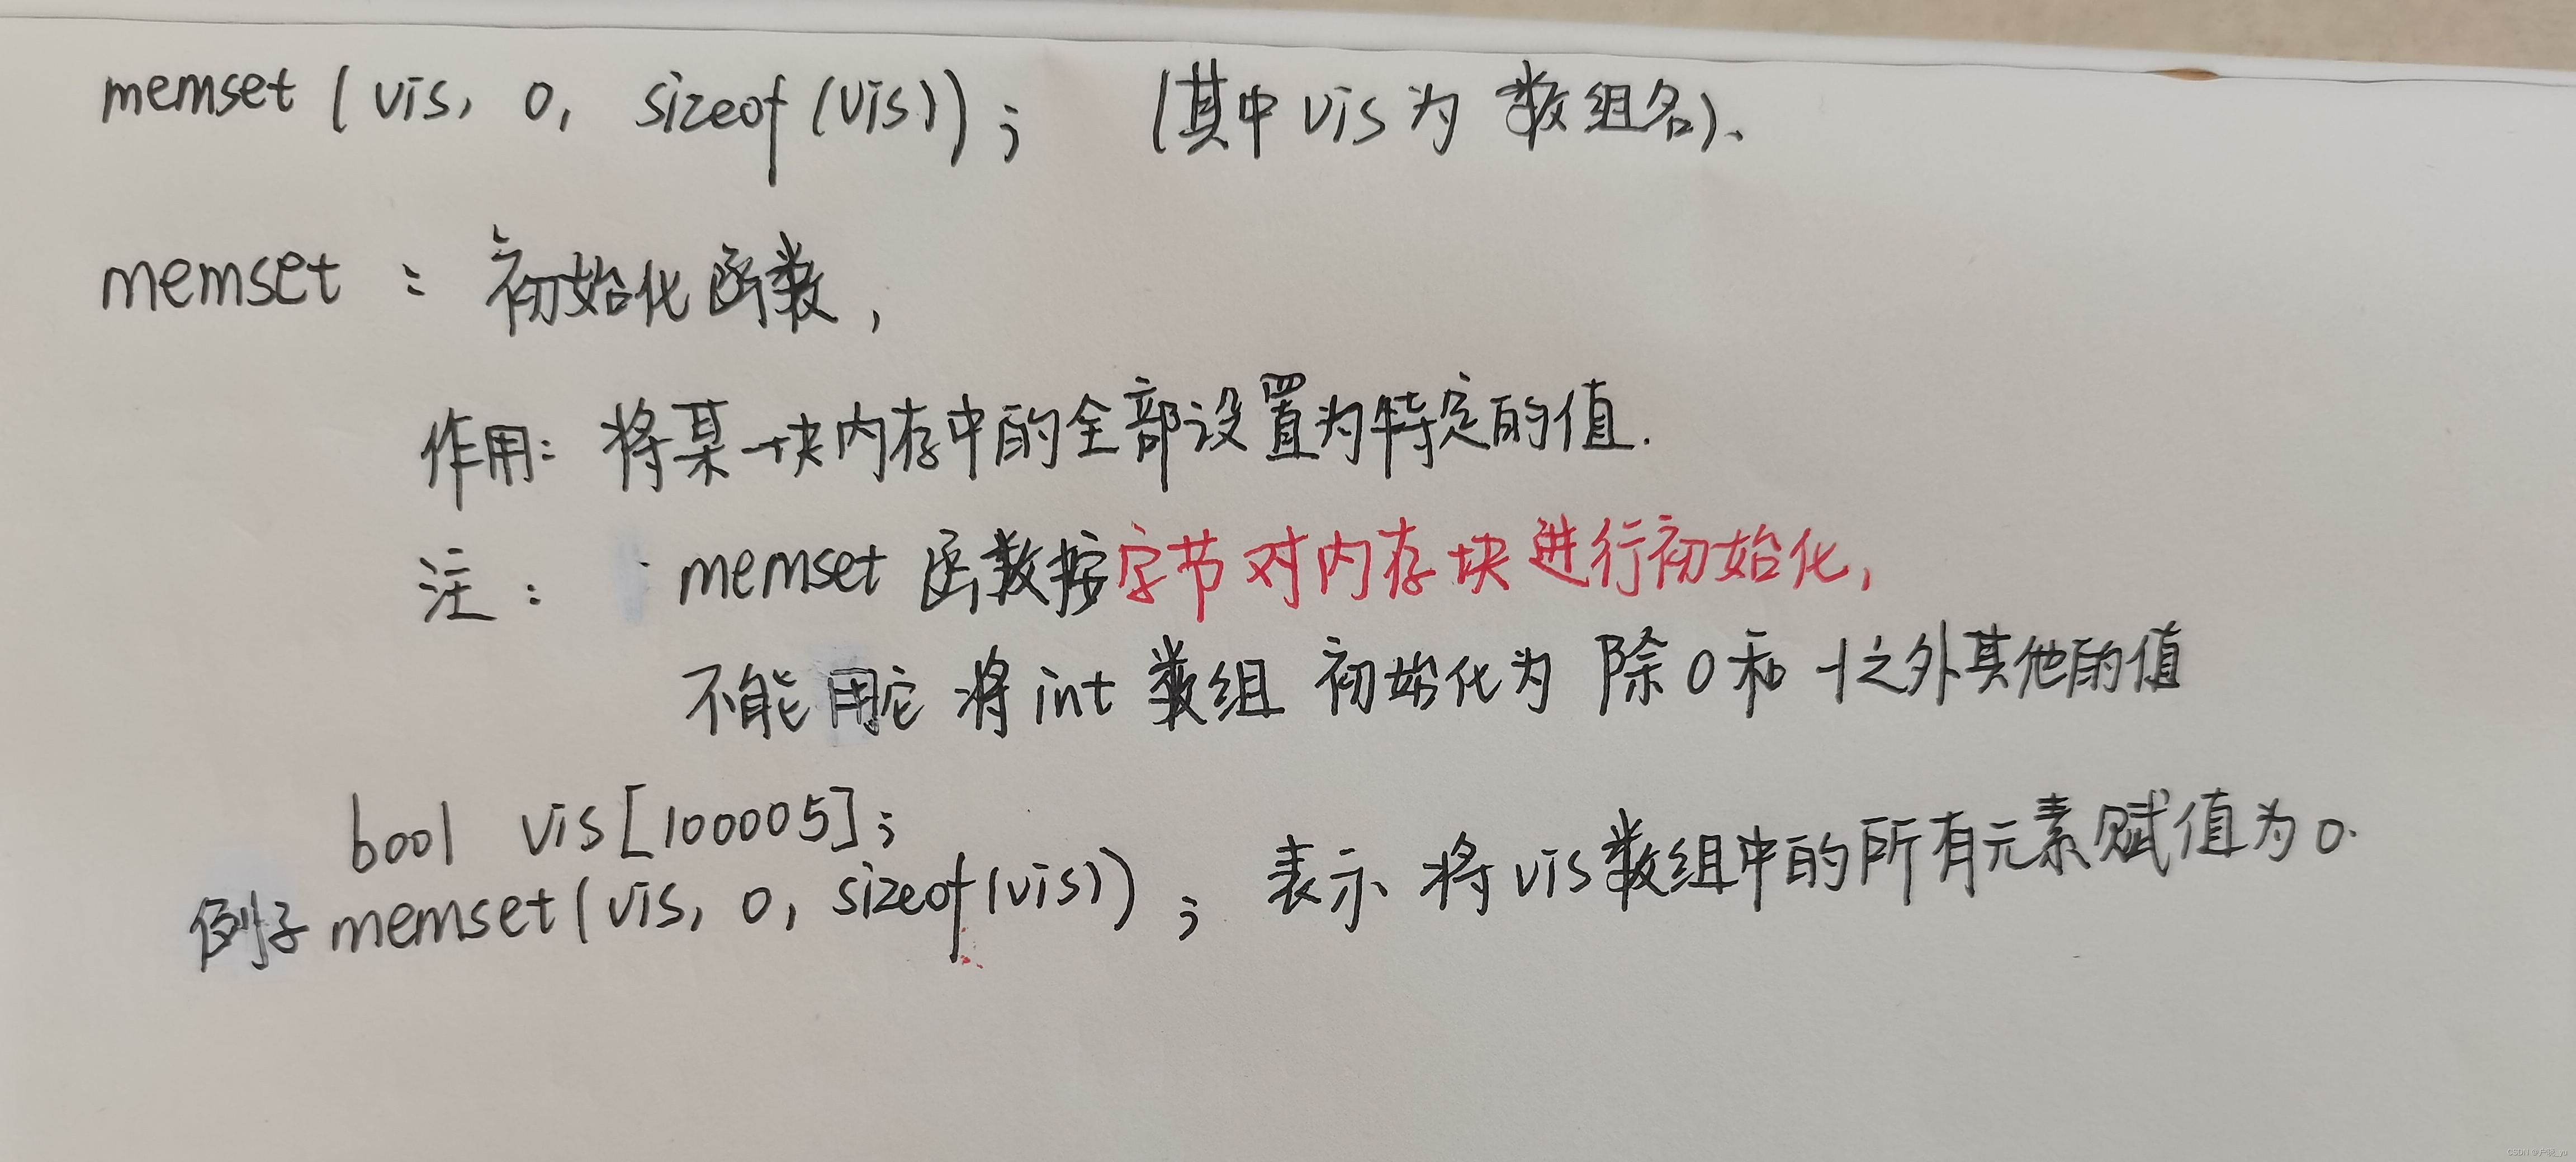 memset (vis, 0, sizeof(vis)); (其中vis为 数组名)、
memset : 初始化函数,
作用: 将某一块内存中的全部设置为特定的值.
注: · memset 函数按字节对内存块进行初始化,
不能用它 将int 数组 初始化为 除0和-1之外其他的值
bool vis[100005];
例子 memset(vis, 0, sizeof(vis)); 表示 将vis数组中的所有元素赋值为0.